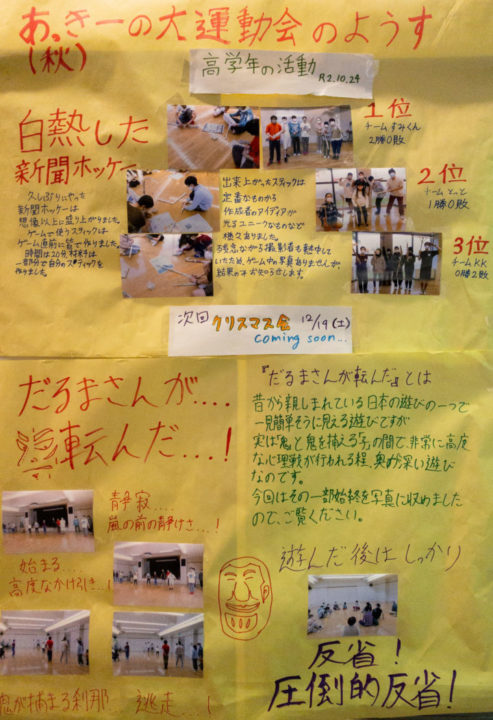 あ、きーの大運動会のようす
(秋)
高学年の活動 R2.10.24
白熱した
新聞ホッケー
久しぶりにやった
新聞ホッケーは
想像以上に盛り上がりました。
ゲームで使うスティックは
ゲーム直前に皆で作りました。
時間は20分、材料は
一部分で自分のスティックを
作りました。
出来上がったスティックは
定番なものから
作成者のアイディアが
光るユニークなものなど
様々ありました。
残念ながら撮影者も熱中して
いたため、ゲーム中の写真ありませんが、
結果のみお知らせします。
1位
チームすみくん
2勝0敗
2位
チームとっと
1勝0敗
3位
チームKK
0勝2敗
次回 クリスマス会 12/19(土)
coming soon...
だるまさんが....
転んだ...!
静寂....
嵐の前の静けさ...!
始まる....
高度なかけひき..!
息が捕まる刹那... 逃走 !
『だるまさんが転んだ』とは
昔から親しまれている日本の遊びの一つで
一見簡単そうに見える遊びですが
実は「鬼と鬼を捕える子」の間で、非常に高度
な心理戦が行われる程、奥が深い遊び
なのです。
今回はその一部始終を写真に収めました
ので、ご覧ください。
遊んだ後はしっかり
反省!
圧倒的反省!